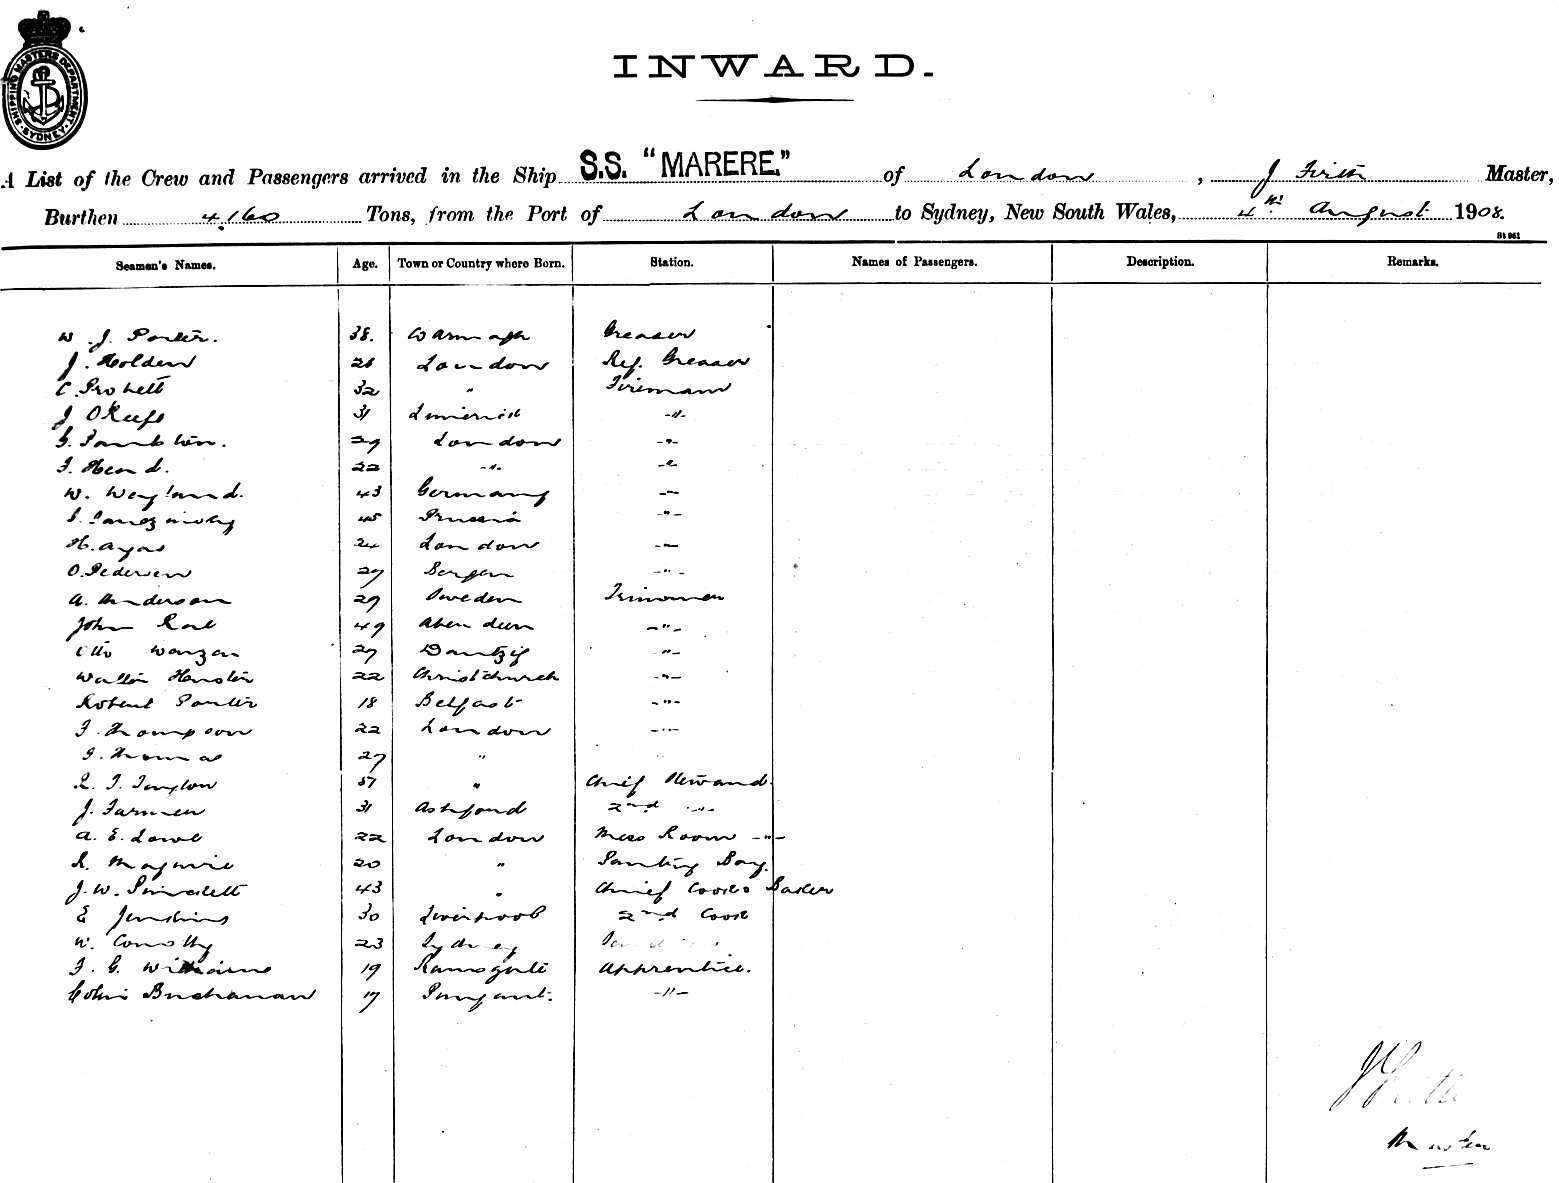 SHIPPING MASTERS DEPARTMENT. SYDNEY.
INWARD.
A List of the Crew and Passengers arrived in the Ship S.S. "MARERE." of London, J Firth Master,
Burthen 4160 Tons, from the Port of London to Sydney, New South Wales, 4th August 1908.
St 861
Seamen's Names. Age. Town or Country where Born. Station. Names of Passengers. Description. Remarks.
W. J. Porter. 38. Greaser
J. Holden London Ref. Greaser
C. 32 " Fireman
J O'Keefe 31 Limerick -"-
29 London -"-
22 -"- -"-
W. Weyland. 43 Germany -"-
45 Prussia -"-
H. 24 London -"-
O. Pedersen 27 Bergen -"-
A. Anderson 29 Sweden Trimmer
John 49 Aberdeen -"-
Otto 27 Dantzig -"-
Walter 22 Christchurch -"-
Robert Porter 18 Belfast -"-
F. Thompson 22 London -"-
Thomas 27 "
57 " Chief Steward
J. Farmer 31 Ashford 2nd -"-
A. E. Lowe 22 London Mess Room -"-
R. Maguire 20 " Pantry Boy.
J. W. 43 " Chief Cook & Baker
E Jenkins 30 Liverpool 2nd Cook
W. Conolly 23 Sydney
F. G. Williams 19 Ramsgate Apprentice.
Colin Buchanan 17 -"-
J Firth
Master